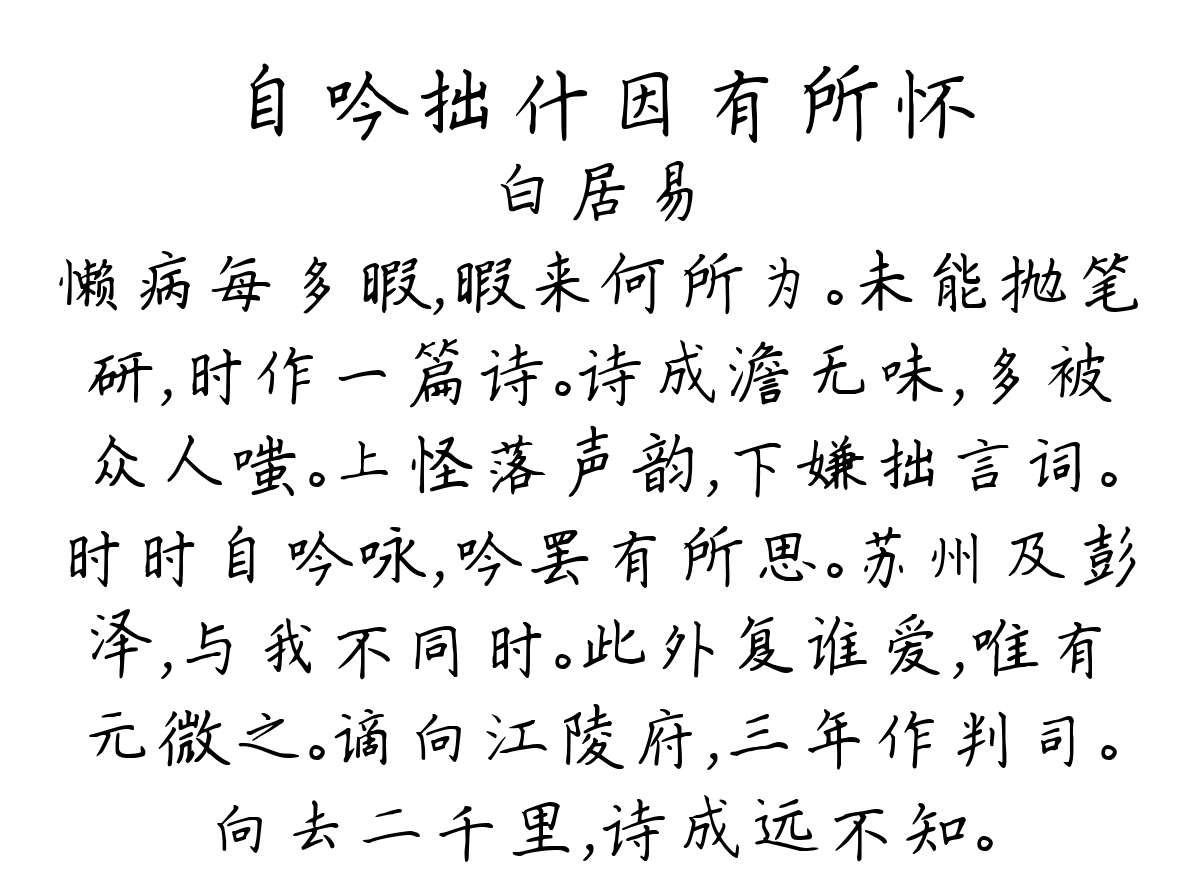 自吟拙什因有所怀
白居易
懒病每多暇,暇来何所为。未能抛笔
研,时作一篇诗。诗成澹无味,多被
众人嗤。上怪落声韵,下嫌拙言词。
时时自吟咏,吟罢有所思。苏州及彭
泽,与我不同时。此外复谁爱,唯有
元微之。谪向江陵府,三年作判司。
向去二千里,诗成远不知。